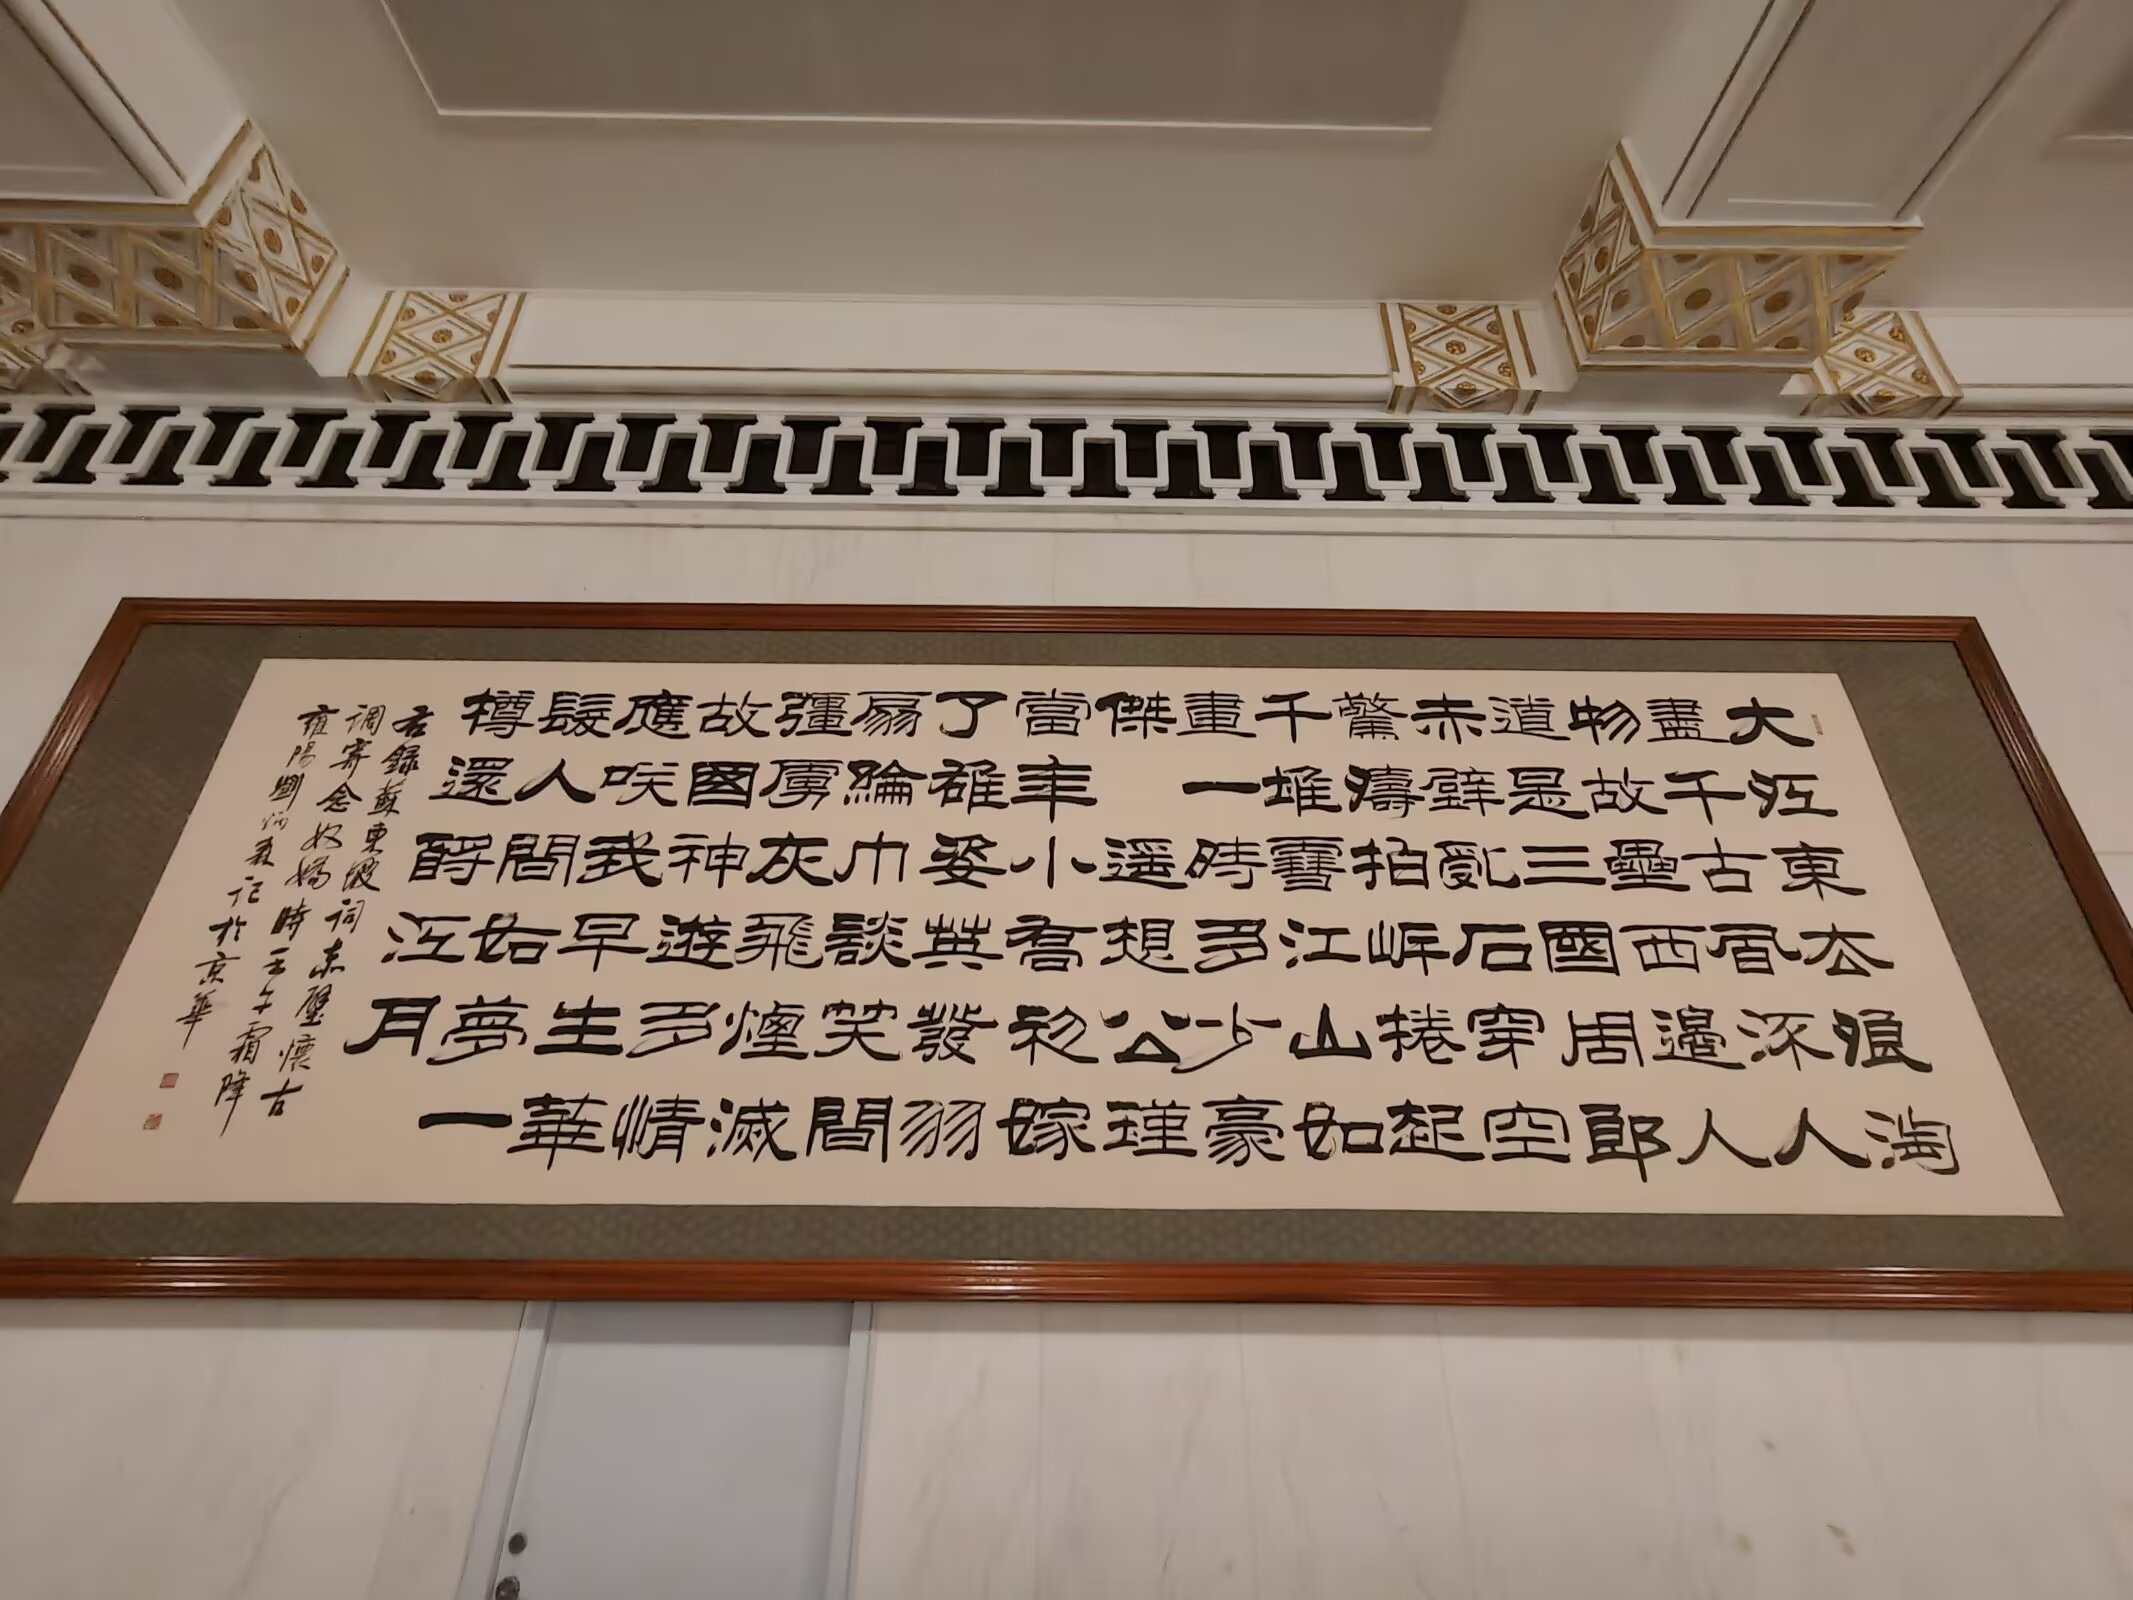 大江東去浪淘
盡千古風流人
物故壘西邊人
道是三國周郎
赤壁亂石穿空
驚濤拍岸捲起
千堆雪江山如
畫一時多少豪
傑 遥想公瑾
當年小喬初嫁
了雄姿英發羽
扇綸巾談笑間
彊虜灰飛煙滅
故國神遊多情
應咲我早生華
髮人間如夢一
樽還酹江月
右錄蘇東坡詞赤壁懷古
調寄念奴嬌時壬午霜降
雍陽劉炳森記於京華